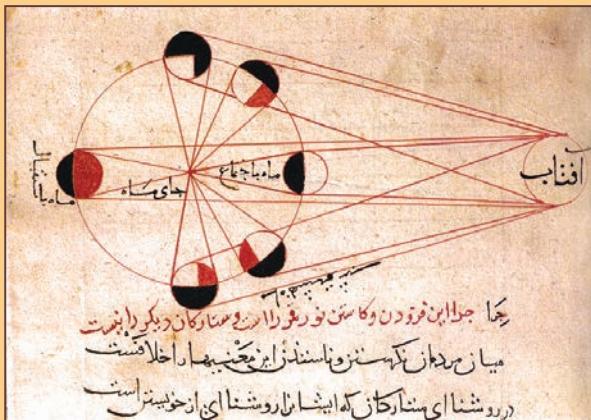 افتاب
ماه باجتماع
جای ماه
ماه باستقبال
چرا این فزودن و کاستن نور قمر را است و ستارکان دیکر را نیست
میان مردمان نکهستن و ناستدن این معنیها را خلافست
در روشنا ای ستارکان که ایشانرا روشنا ای از خویشتن است